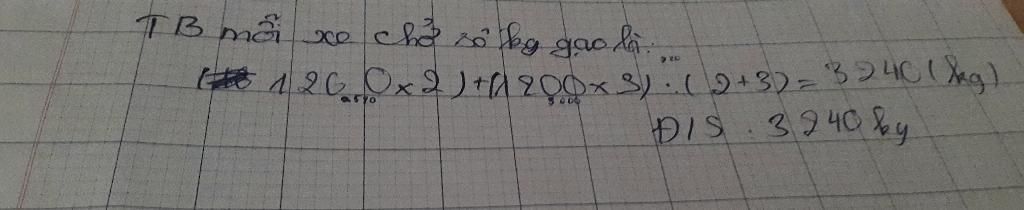 TB mỗi xe chở số kg gạo là:
( 1260 x 2 ) + ( 1200 x 3 ) : ( 2 + 3 ) = 3240 ( kg )
Đ/S : 3240 kg